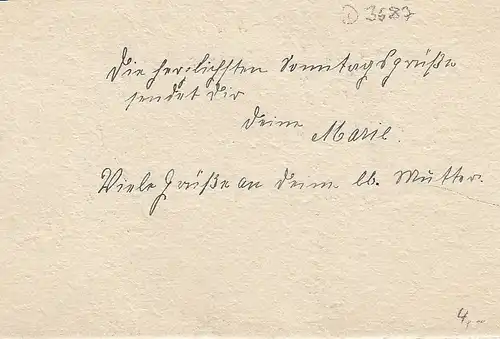 D 3587
Die herzlichsten Sonntagsgrüße
sendet Dir
Deine
Marie.
Viele Grüße an Deine lb. Mutter.
4,-